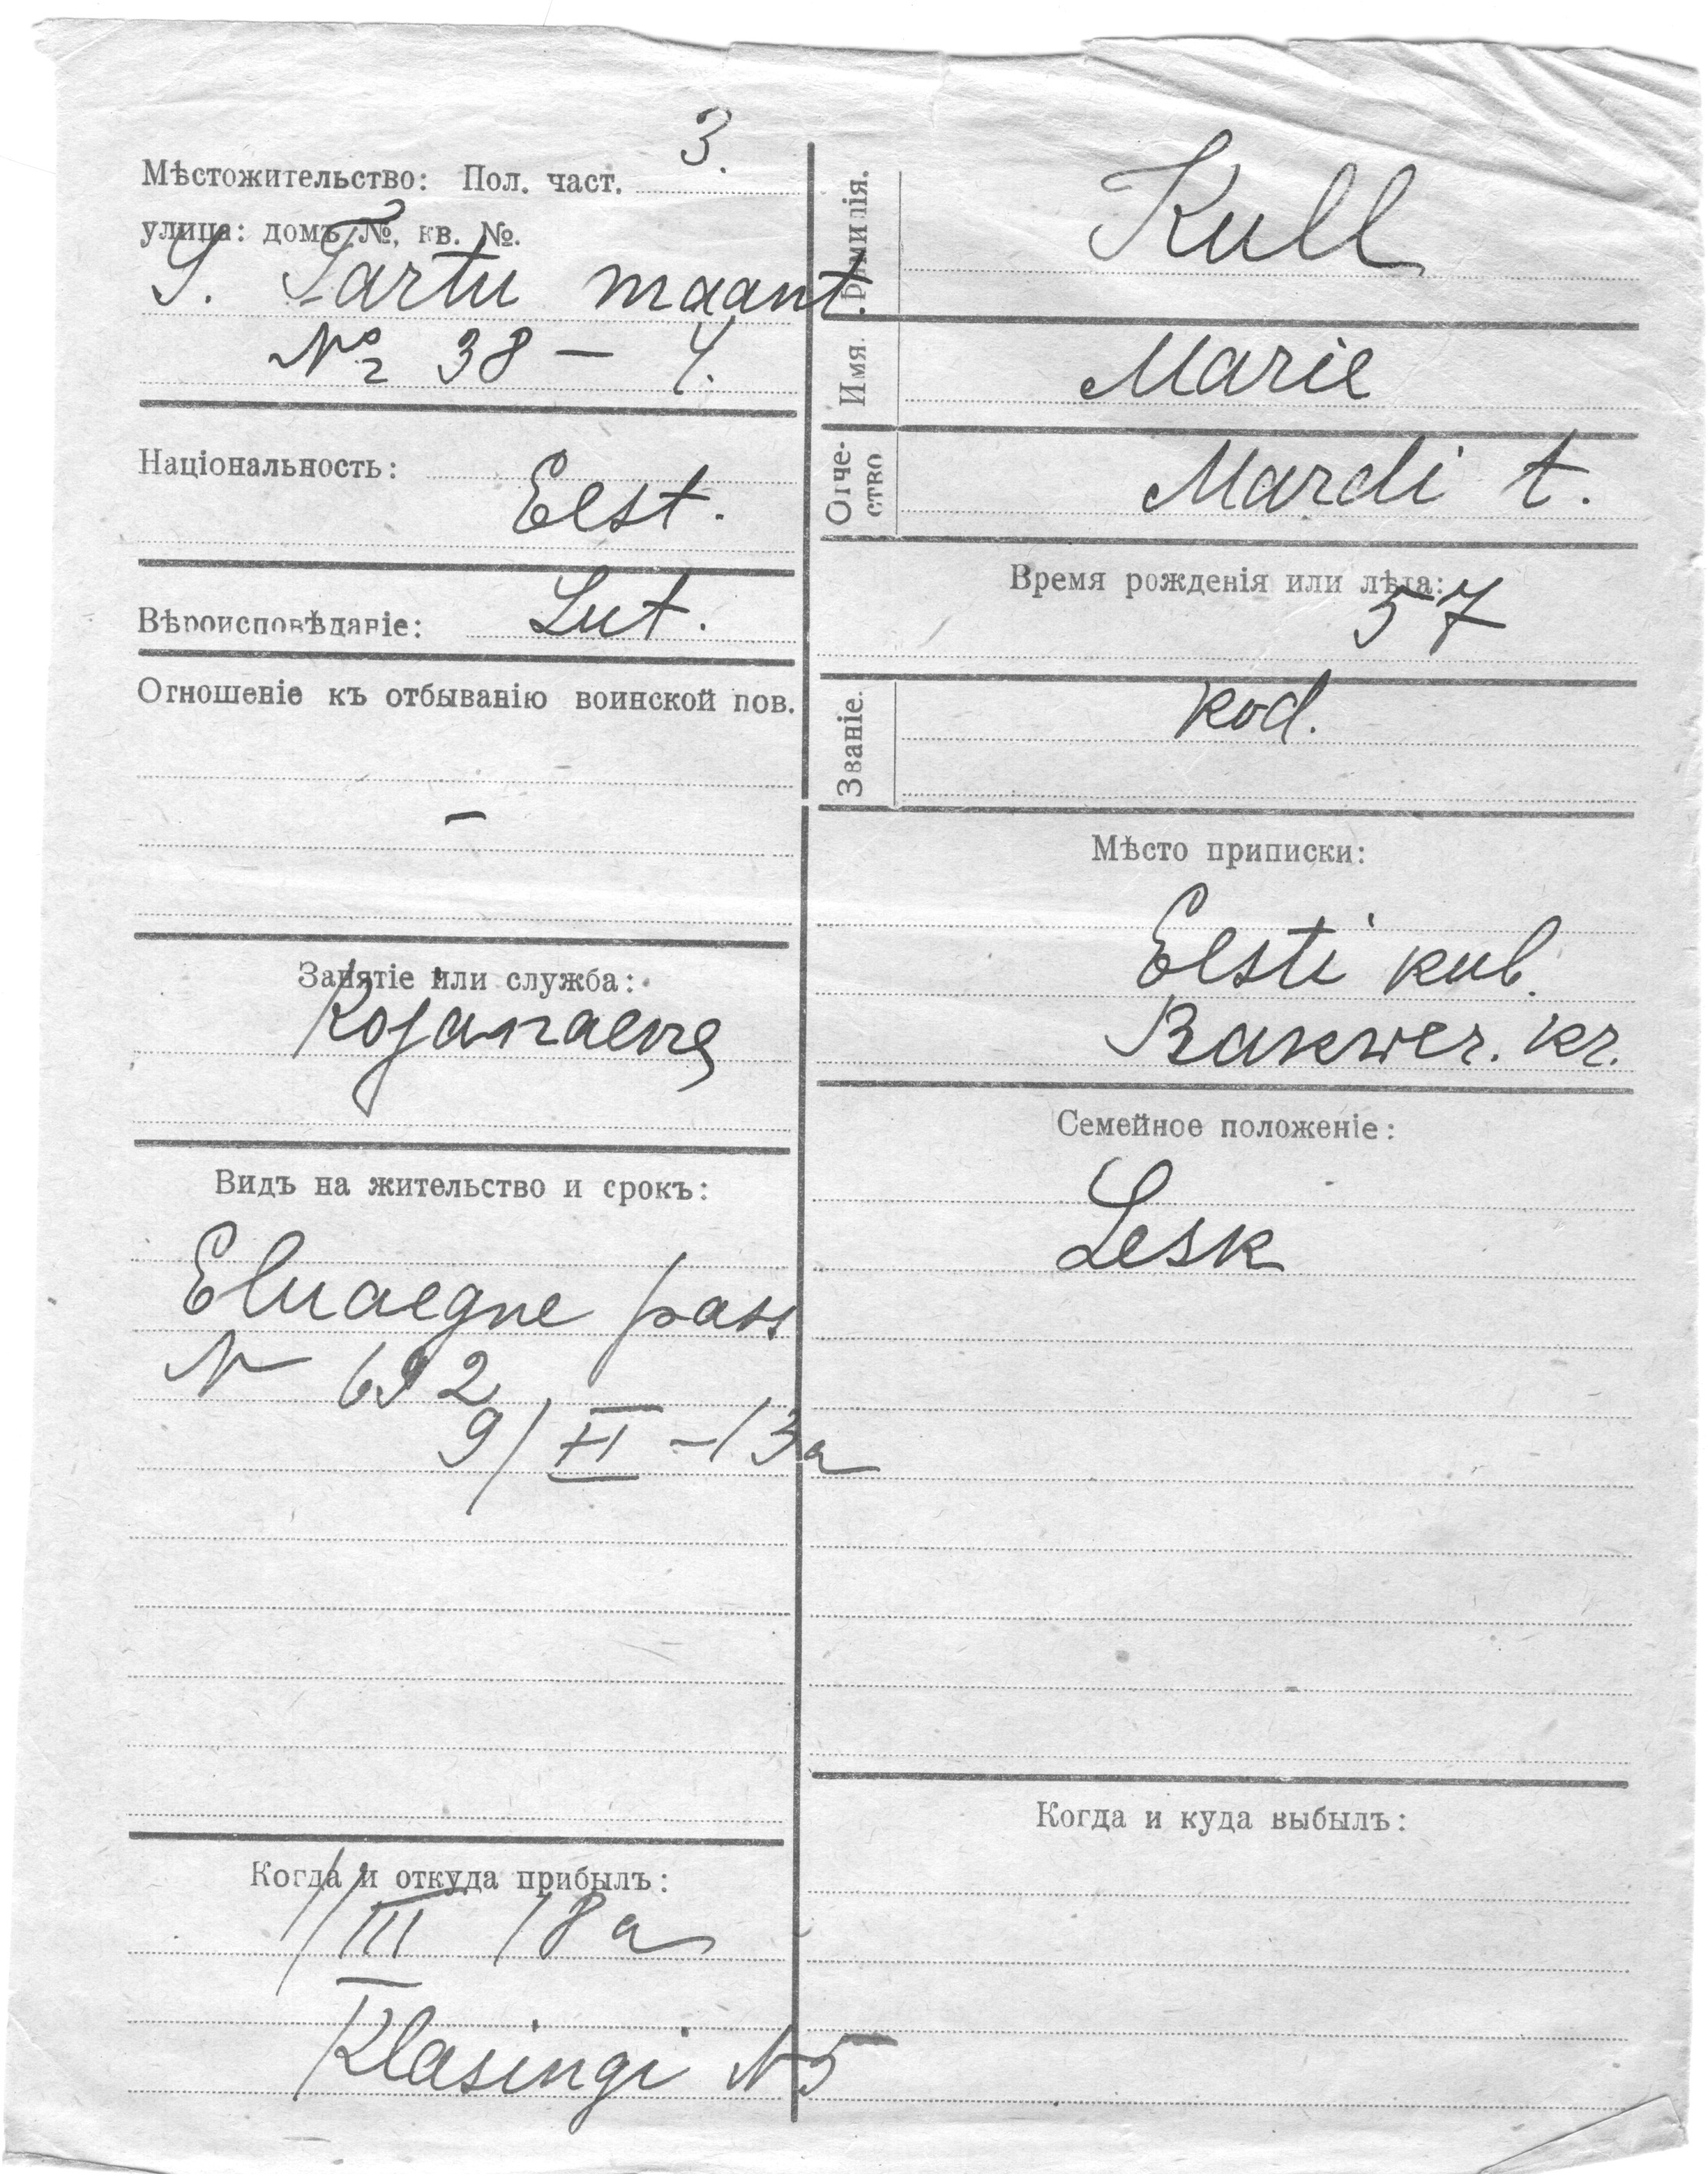 Мѣстожительство: Пол. част. 3.
улица: домъ №, кв. №.
S. Tartu maant.
№ 38 – 4.
Національность:
Eest.
Вѣроисповѣданіе: Lut.
Отношеніе къ отбыванію воинской пов.
–
Занятіе или служба:
Kojanaene
Видъ на жительство и срокъ:
Eluaegne pass
N 692
9/XI – 13 a
Когда и откуда прибылъ:
1/III 18 a
Klasingi N 5
Фамилія. Kull
Имя. Marie
Отчество Mardi t.
Время рожденія или лѣта:
57
Званіе. kod.
Мѣсто приписки:
Eesti kub.
Rakwer. kr.
Семейное положеніе:
Lesk
Когда и куда выбылъ: